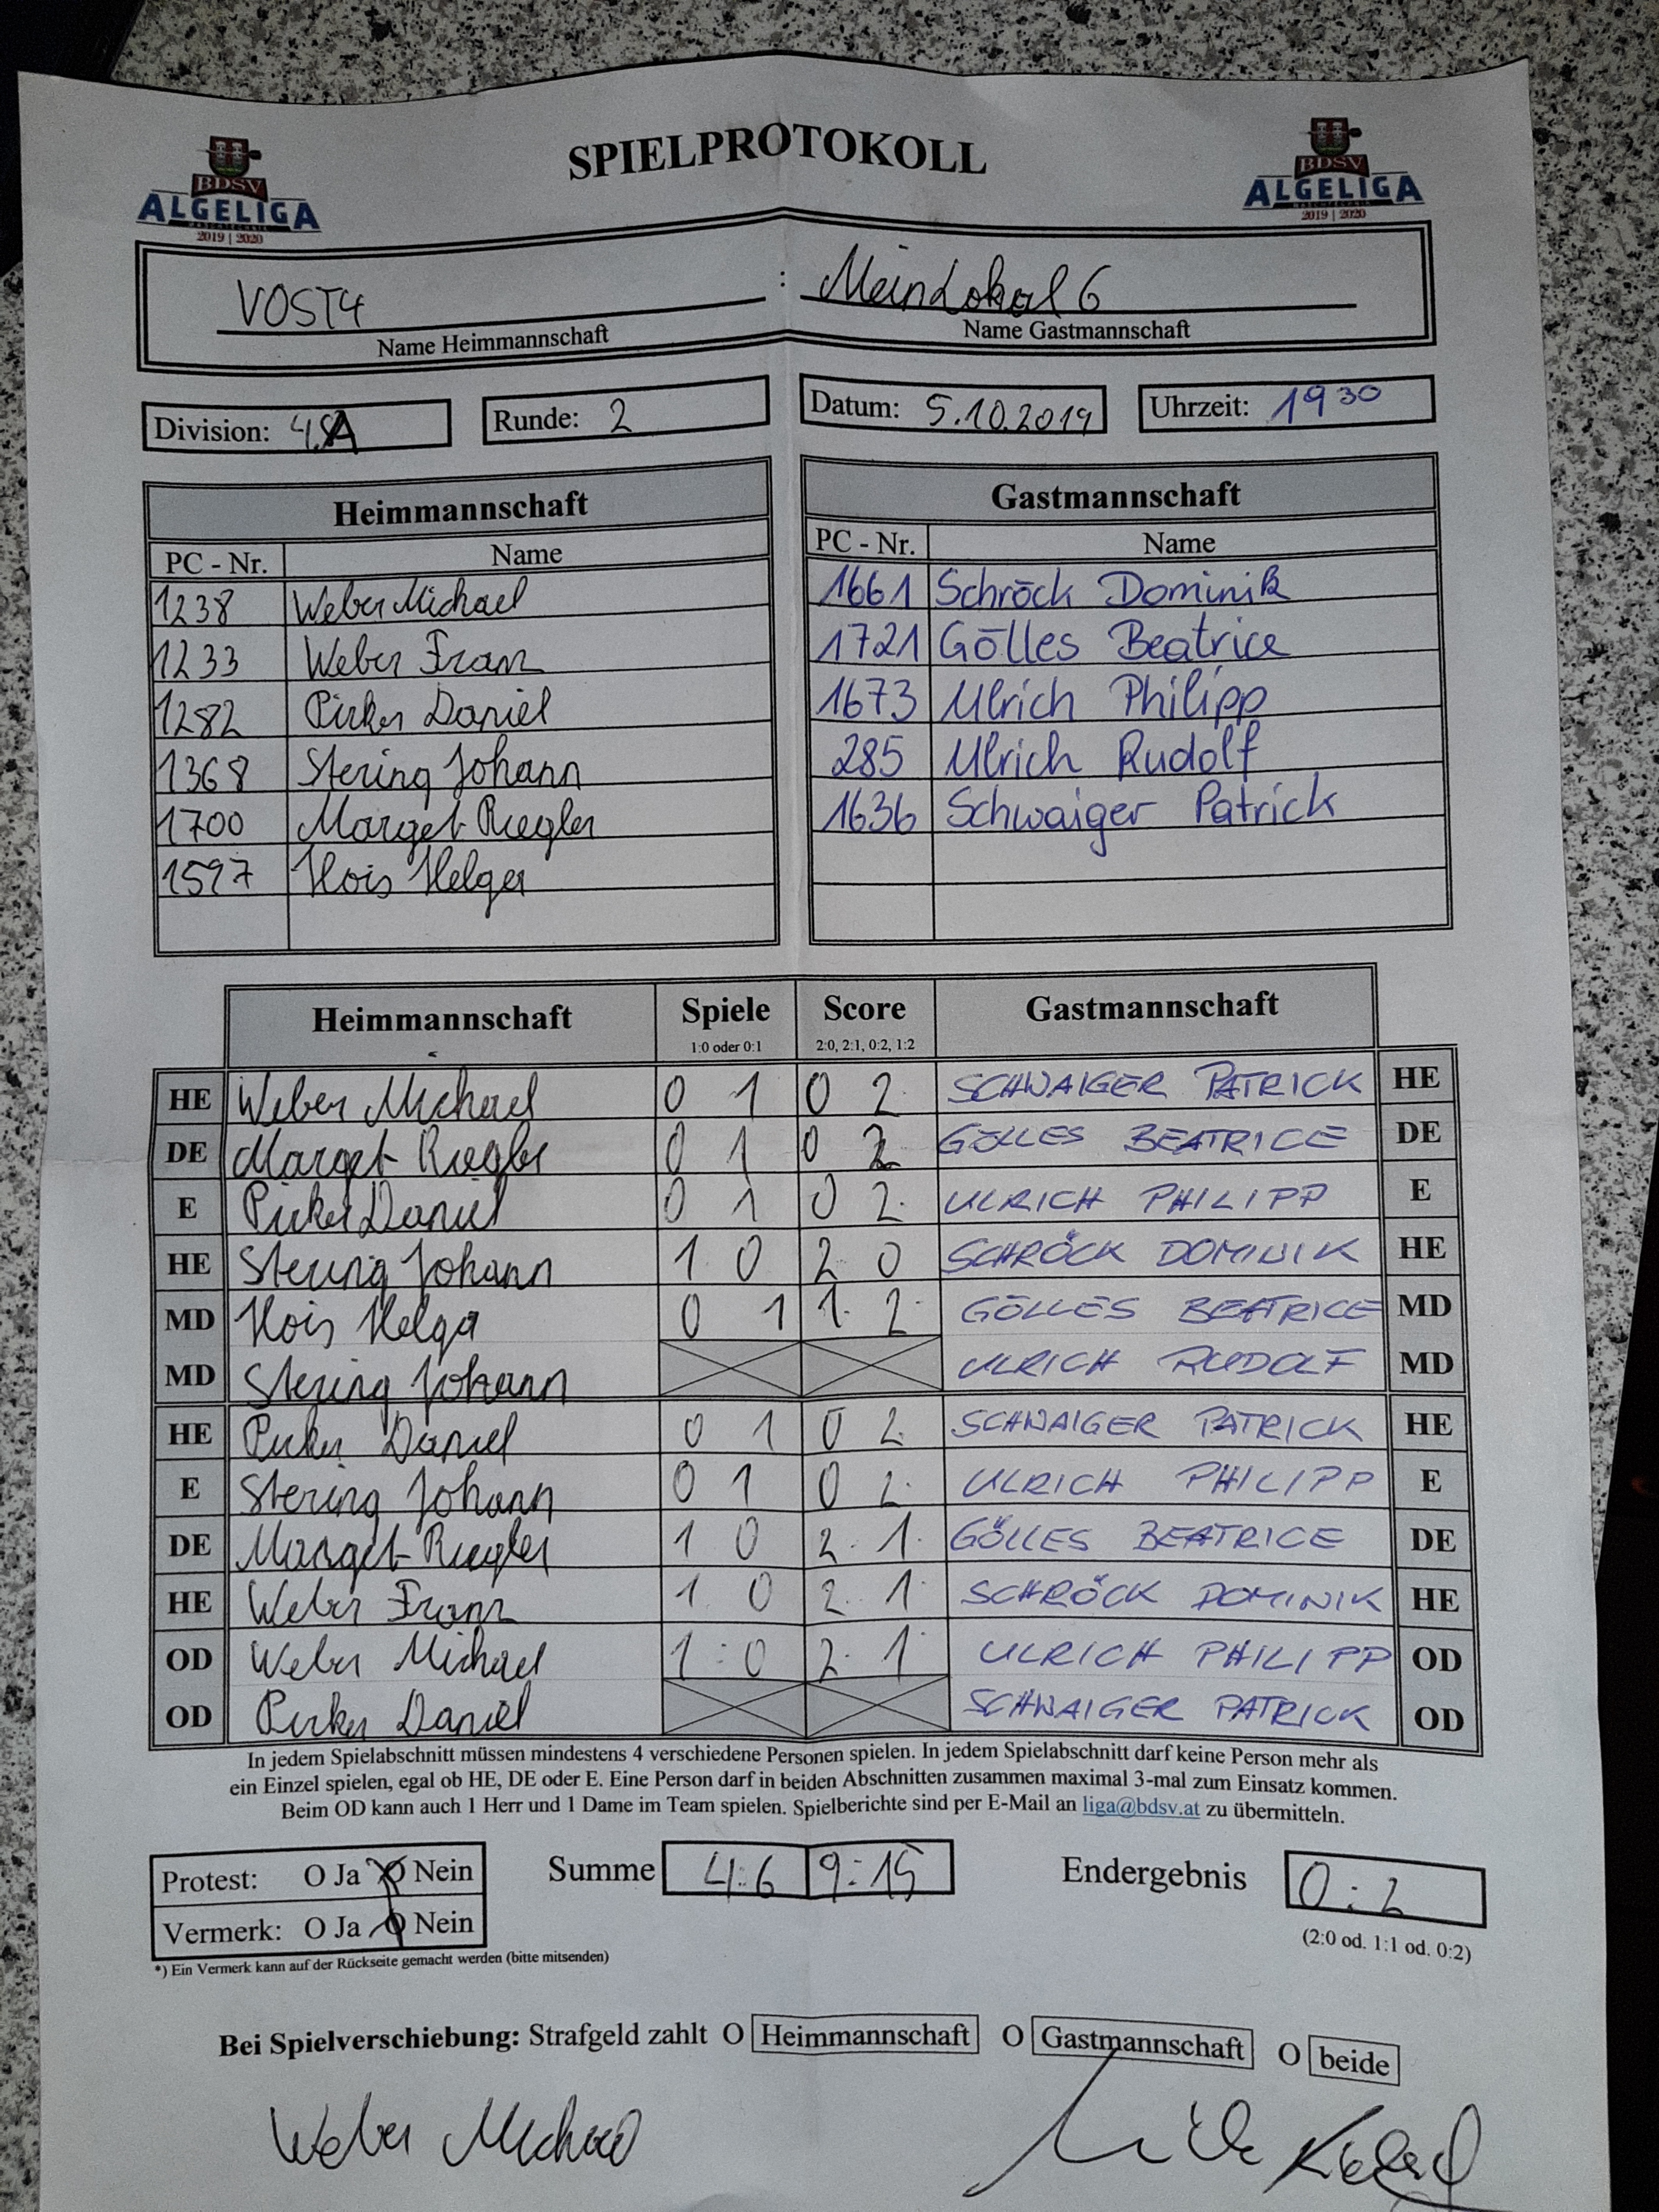 SPIELPROTOKOLL
BDSV
ALGELIGA
2019 | 2020
BDSV
ALGELIGA
2019 | 2020
VOST4 : MeinLokal 6
Name Heimmannschaft Name Gastmannschaft
Division: 4. A Runde: 2 Datum: 5.10.2019 Uhrzeit: 19 30
Heimmannschaft Gastmannschaft
PC - Nr. Name PC - Nr. Name
1238 Weber Michael 1661 Schröck Dominik
1233 Weber Franz 1721 Gölles Beatrice
1282 Pirker Daniel 1673 Ulrich Philipp
1368 Stering Johann 285 Ulrich Rudolf
1700 Marget Riegler 1636 Schwaiger Patrick
1597 Hois Helga
Heimmannschaft Spiele Score Gastmannschaft
1:0 oder 0:1 2:0, 2:1, 0:2, 1:2
HE Weber Michael 0 1 0 2 SCHWAIGER PATRICK HE
DE Marget Riegler 0 1 0 2 GÖLLES BEATRICE DE
E Pirker Daniel 0 1 0 2 ULRICH PHILIPP E
HE Stering Johann 1 0 2 0 SCHRÖCK DOMINIK HE
MD Hois Helga 0 1 1 2 GÖLLES BEATRICE MD
MD Stering Johann ULRICH RUDOLF MD
HE Pirker Daniel 0 1 0 2 SCHWAIGER PATRICK HE
E Stering Johann 0 1 0 2 ULRICH PHILIPP E
DE Marget Riegler 1 0 2 1 GÖLLES BEATRICE DE
HE Weber Franz 1 0 2 1 SCHRÖCK DOMINIK HE
OD Weber Michael 1 : 0 2 1 ULRICH PHILIPP OD
OD Pirker Daniel SCHWAIGER PATRICK OD
In jedem Spielabschnitt müssen mindestens 4 verschiedene Personen spielen. In jedem Spielabschnitt darf keine Person mehr als
ein Einzel spielen, egal ob HE, DE oder E. Eine Person darf in beiden Abschnitten zusammen maximal 3-mal zum Einsatz kommen.
Beim OD kann auch 1 Herr und 1 Dame im Team spielen. Spielberichte sind per E-Mail an liga@bdsv.at zu übermitteln.
Protest: O Ja O Nein Summe 4:6 9:15 Endergebnis 0:2
Vermerk: O Ja O Nein
(2:0 od. 1:1 od. 0:2)
*) Ein Vermerk kann auf der Rückseite gemacht werden (bitte mitsenden)
Bei Spielverschiebung: Strafgeld zahlt O Heimmannschaft O Gastmannschaft O beide
Weber Michael